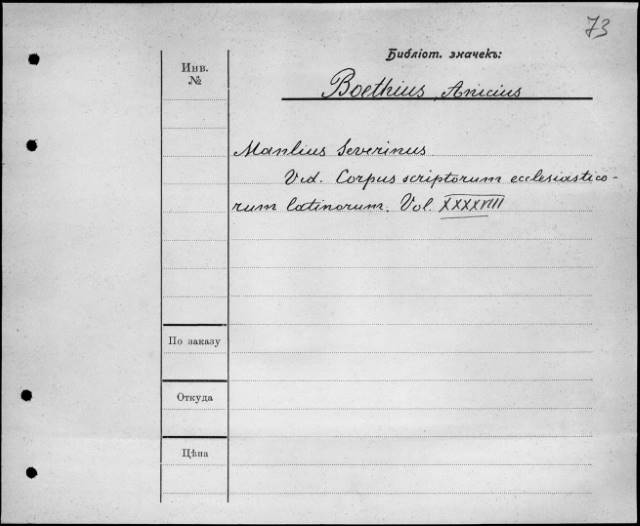 73
Библіот. значекъ:
Инв.
№
Boethius, Anicius
Manlius Severinus
Vid. Corpus scriptorum ecclesiastico-
rum latinorum. Vol. XXXXVIII
По заказу
Откуда
Цѣна